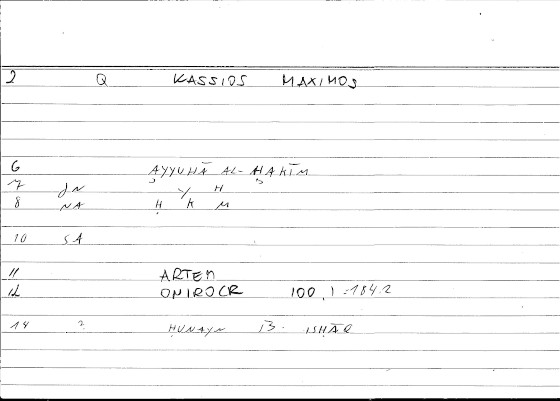 2 Q KASSIOS MAXIMOS
6 AYYUHĀ AL-ḤAKĪM
7 dN Y H
8 NA Ḥ K M
10 SA
11 ARTEM
12 ONIROCR 100,1 184.2
14 ? ḤUNAYN B. ISḤĀQ